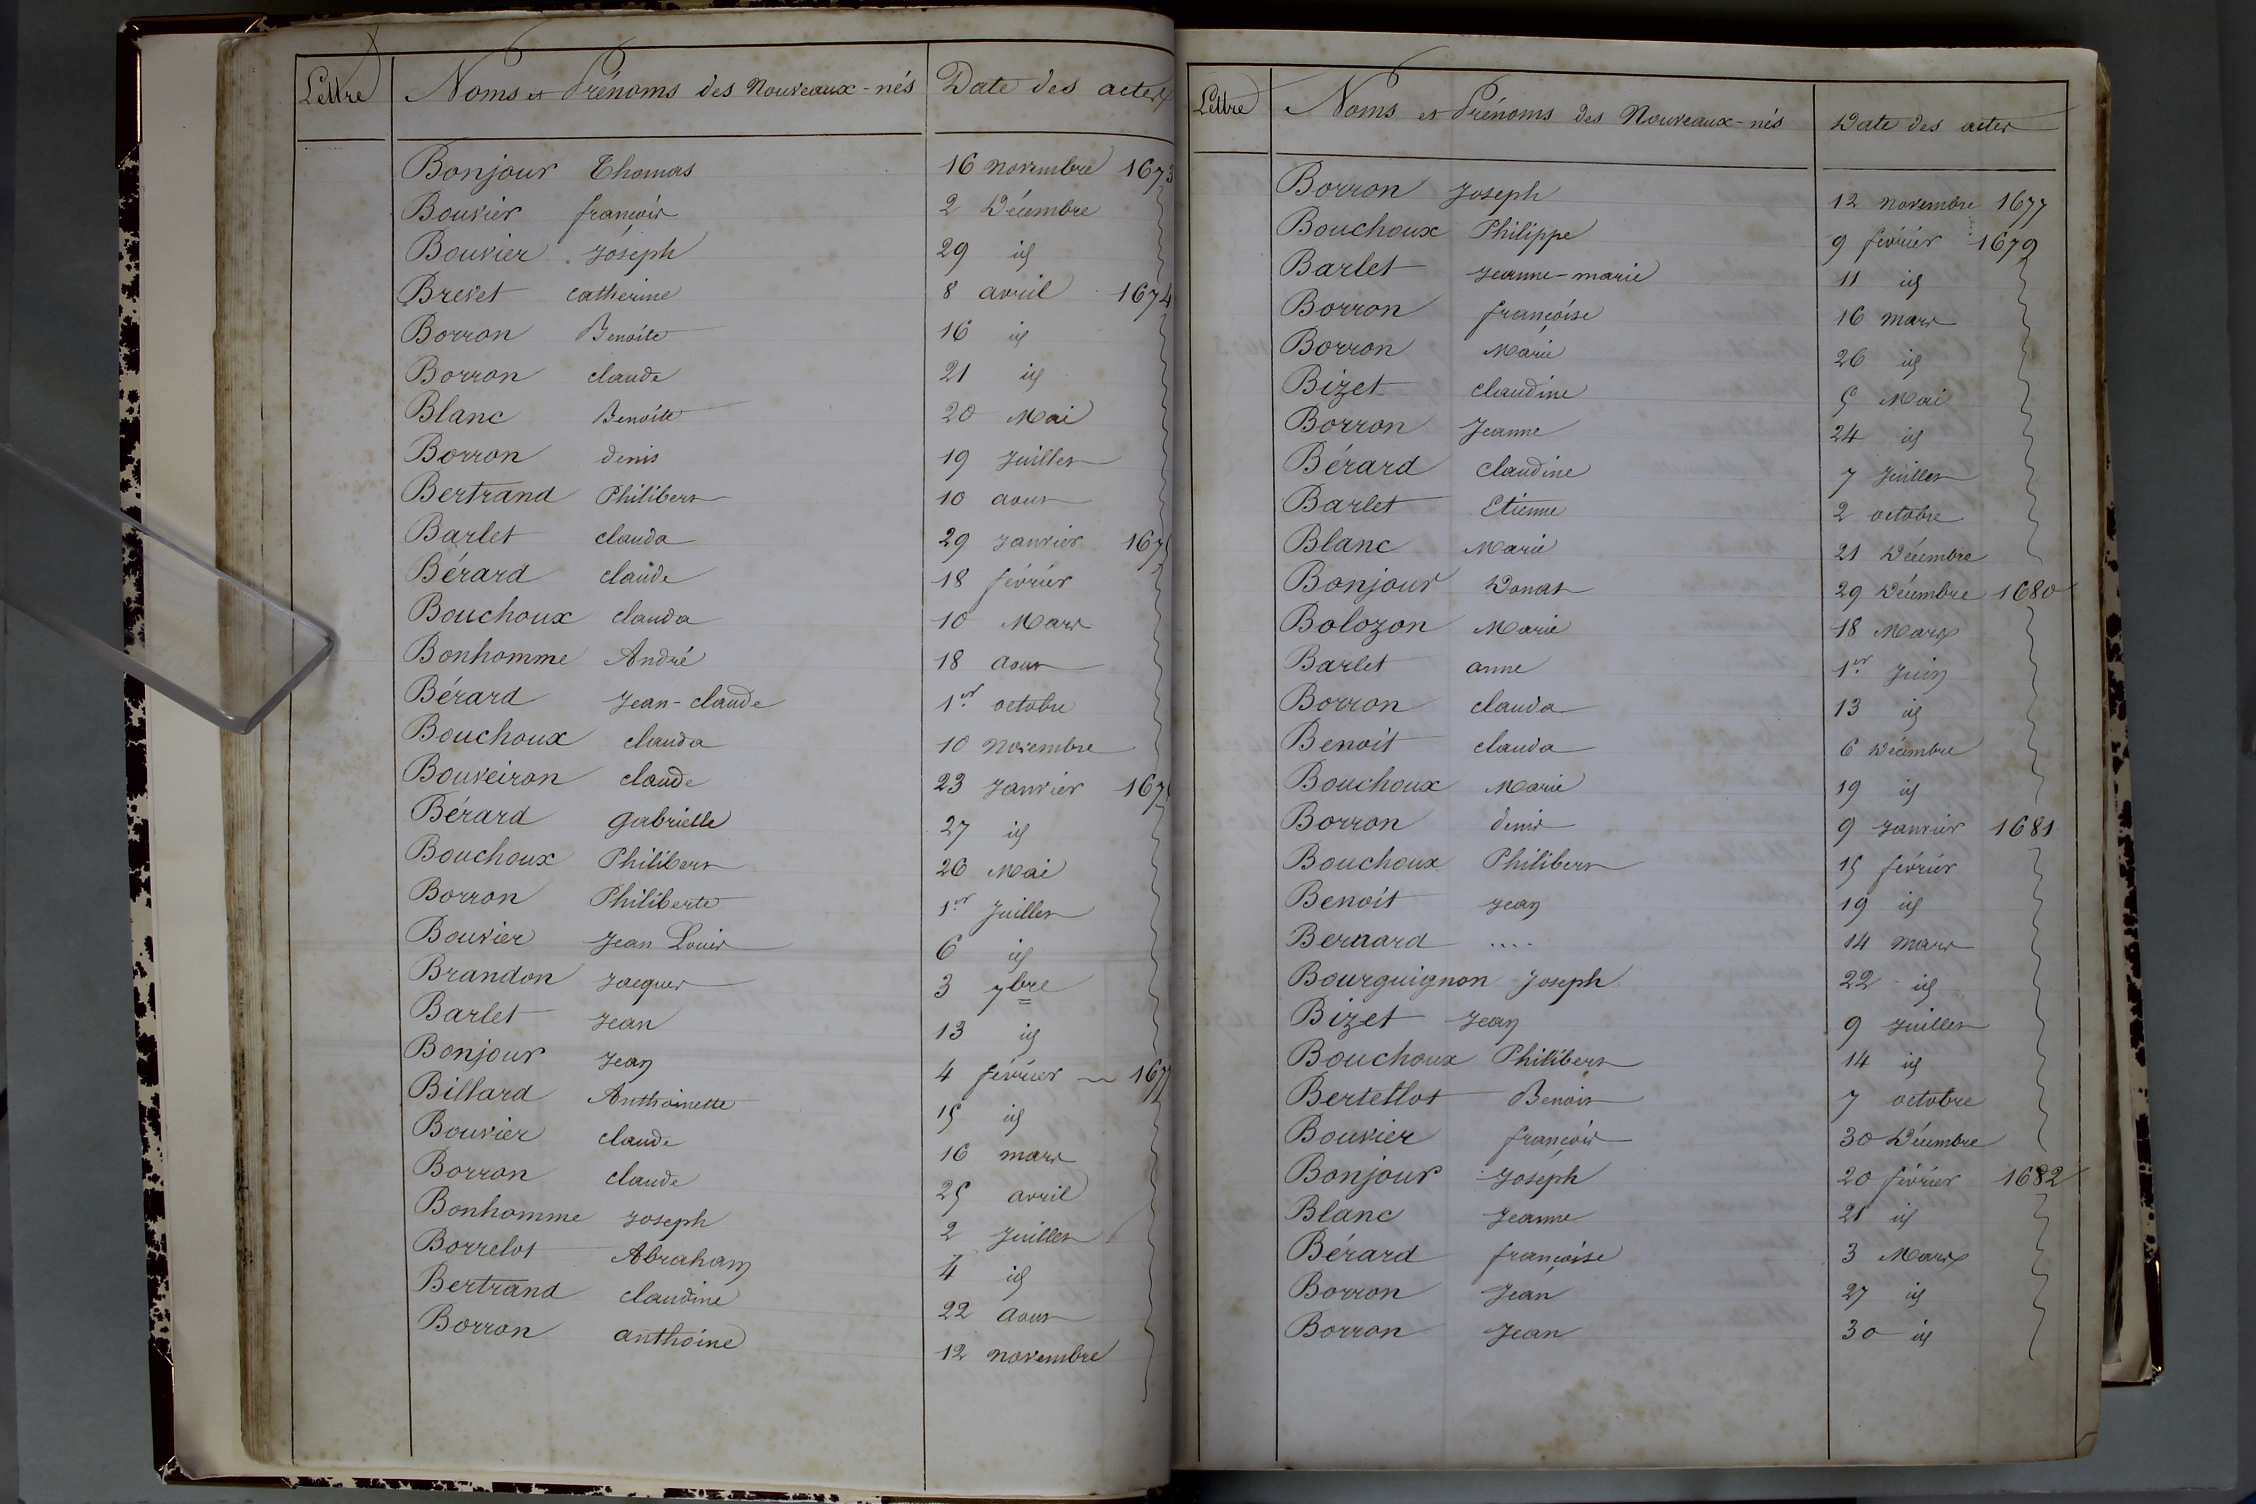 Lettre Noms et Prénoms des Nouveaux-nés Date des actes
Bonjour Thomas 16 novembre 1673
Bouvier françois 2 Décembre
Bouvier Joseph 29 id
Brevet catherine 8 avril 1674
Borron Benoite 16 id
Borron claude 21 id
Blanc Benoite 20 Mai
Borron denis 19 Juillet
Bertrand Philibert 10 aout
Barlet clauda 29 Janvier 167
Bérard claude 18 février
Bouchoux clauda 10 Mars
Bonhomme André 18 aout
Bérard Jean-claude 1er octobre
Bouchoux clauda 10 novembre
Bouveiron claude 23 Janvier 167
Bérard gabrielle 27 id
Bouchoux Philibert 26 Mai
Borron Philiberte 1er Juillet
Bouvier Jean Louis 6 id
Brandon Jacques 3 7bre
Barlet Jean 13 id
Bonjour Jean 4 février 167
Billard Anthoinette 15 id
Bouvier claude 16 mars
Borron claude 25 avril
Bonhomme Joseph 2 Juillet
Borrelot Abraham 4 id
Bertrand claudine 22 aout
Borron anthoine 12 novembre
Lettre Noms et Prénoms des Nouveaux-nés Date des actes
Borron Joseph 12 novembre 1677
Bouchoux Philippe 9 février 1679
Barlet Jeanne-marie 11 id
Borron françoise 16 mars
Borron Marie 26 id
Bizet claudine 5 Mai
Borron Jeanne 24 id
Bérard claudine 7 Juillet
Barlet Etienne 2 octobre
Blanc Marie 21 Décembre
Bonjour Donat 29 Décembre 1680
Bolozon Marie 18 Mars
Barlet anne 1er Juin
Borron clauda 13 id
Benoit clauda 6 Décembre
Bouchoux Marie 19 id
Borron denis 9 Janvier 1681
Bouchoux Philibert 15 février
Benoit Jean 19 id
Bernard .... 14 mars
Bourguignon Joseph 22 id
Bizet Jean 9 Juillet
Bouchoux Philibert 14 id
Bertetlot Benoit 7 octobre
Bouvier françois 30 Décembre
Bonjour Joseph 20 février 1682
Blanc Jeanne 21 id
Bérard françoise 3 Mars
Borron Jean 27 id
Borron Jean 30 id